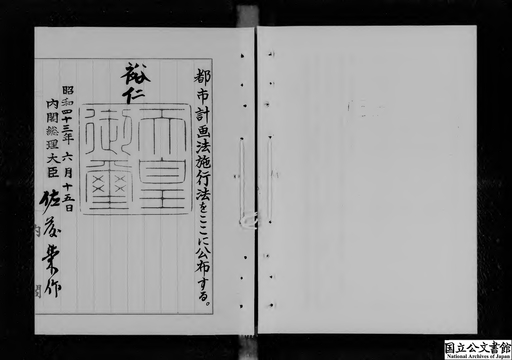 都市計画法施行法をここに公布する。
裕仁
天皇
御璽
昭和四十三年六月十五日
内閣総理大臣 佐藤榮作
内閣
国立公文書館
National Archives of Japan